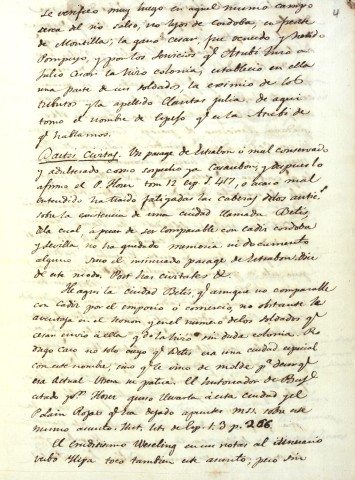 4
se verificó muy luego en aquel mismo campo
cerca del rio salso, no lejos de Cordoba, en frente
de Montilla, la ganó cesar, fue vencido y
Pompeyo, y por los servicios qe Atubi hizo a
Julio Cesar la hizo colonia, estableció en ella
una parte de sus soldados, la eximio de los
tributos y la apellidó Claritas julia. de aqui
tomó el nombre de qe usa la Atubi de
qe hablamos.
Baetis Civitas. Un pasage de Estrabon ó mal conservado
y adulterado como sospechó ya Casaubon, y despues lo
afirma el P. Florez tom 12 p 417, ó acaso mal
entendido ha traido fatigadas las cabezas de los antic.s
sobre la existencia de una ciudad llamada Betis,
dela cual, a pesar de ser comparable con cadiz cordoba
y sevilla no ha quedado memoria ni documento
alguno sino el insinuado pasage de Estrabon. dice
de este modo. Post has civitates &.
He aqui la ciudad Betis, qe aunque no comparable
con Cadiz por el emporio ó comercio, no obstante le
aventaja en el honor y en el numero de los soldados qe
cesar envió á ella y de la hizo sin duda colonia. Ro
drigo Caro no solo creyo qe Betis era una ciudad especial
con este nombre, sino qe le vino de molde pa decir qe
era actual Utrera su patria. El
citado por Florez quiso llevarla á esta ciudad y el
P. Roxas qe ha dejado apuntes mss. sobre este
mismo asunto. Hist. lit. de Esp. t. 3 p. 266
El eruditisimo Weseling en sus notas al itinerario
verbo Hipa tocó tambien este asunto; pero sin